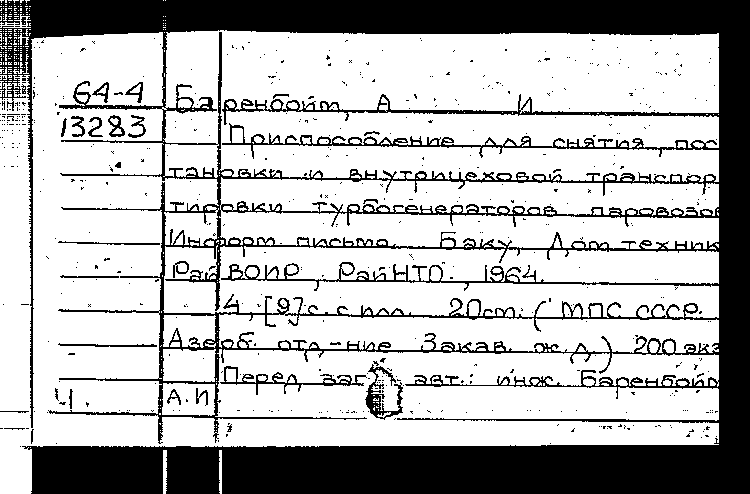 64-4 Баренбойм, А И
13283 Приспособление для снятия, пос
тановки и внутрицеховой транспор
тировки турбогенераторов паровозов
Информ письмо. Баку, Дом техник
Рай ВОИР, РайНТО., 1964.
4, [9] с. с илл. 20см. (МПС СССР.
Азерб. отд-ние Закав. ж.д.) 200 экз
Перед заг авт.: инж. Баренбойм
Ч. А.И